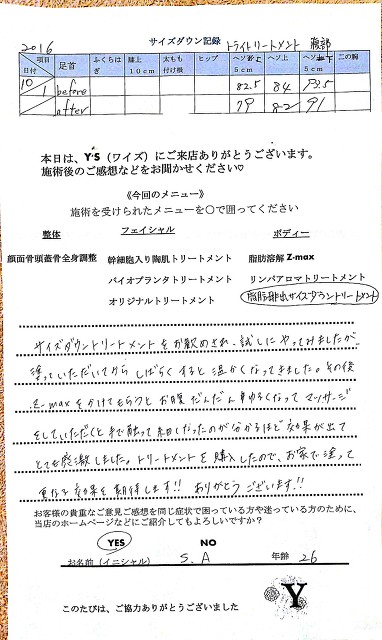 2016 サイズダウン記録 トライトリートメント 腹部
項目 日付 足首 ふくらはぎ 膝上10cm 太もも付け根 ヒップ ヘソ 5cm ヘソ上 ヘソ 下 5cm 二の腕
10/1 before 82.5 84 93.5
after 79 82 91
本日は、Y'S(ワイズ)にご来店ありがとうございます。
施術後のご感想などをお聞かせください♡
《今回のメニュー》
施術を受けられたメニューを〇で囲ってください
整体 フェイシャル ボディー
顔面骨頭蓋骨全身調整 幹細胞入り陶肌トリートメント 脂肪溶解 Z-max
バイオプランタトリートメント リンパアロマトリートメント
オリジナルトリートメント 脂肪排出サイズダウントリートメント
サイズダウントリートメントをお勧めされ、試しにやってみましたが、
塗っていただいてから しばらくすると温かくなってきました。その後
Z-maxをかけてもらうとお腹がだんだんゆるくなって マッサージ
をしていただくと手で触って細くなったのが分かるほど効果が出て
とても感激しました。トリートメントを購入したので、お家で塗って
更なる効果を期待します!! ありがとうございます!!
お客様の貴重なご意見ご感想を同じ症状で困っている方や迷っている方のために、
当店のホームページなどにご紹介してもよろしいですか?
YES NO
お名前(イニシャル) S.A 年齢 26
Y
このたびは、ご協力ありがとうございました